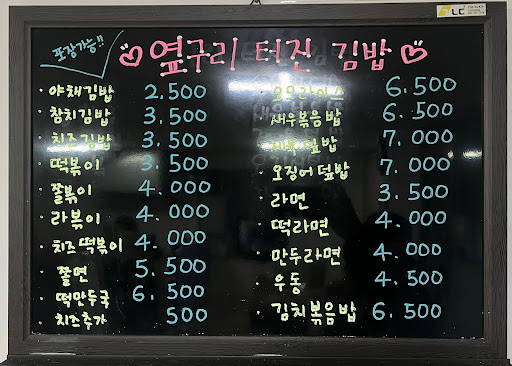 포장가능!!
옆구리 터진 김밥
· 야채김밥 2.500
· 참치김밥 3.500
· 치즈김밥 3.500
· 떡볶이 3.500
· 쫄볶이 4.000
· 라볶이 4.000
· 치즈떡볶이 4.000
· 쫄면 5.500
· 떡만두국 6.500
치즈추가 500
· 오므라이스 6.500
· 새우볶음밥 6.500
· 제육덮밥 7.000
· 오징어덮밥 7.000
· 라면 3.500
· 떡라면 4.000
· 만두라면 4.000
· 우동 4.500
· 김치볶음밥 6.500
LC